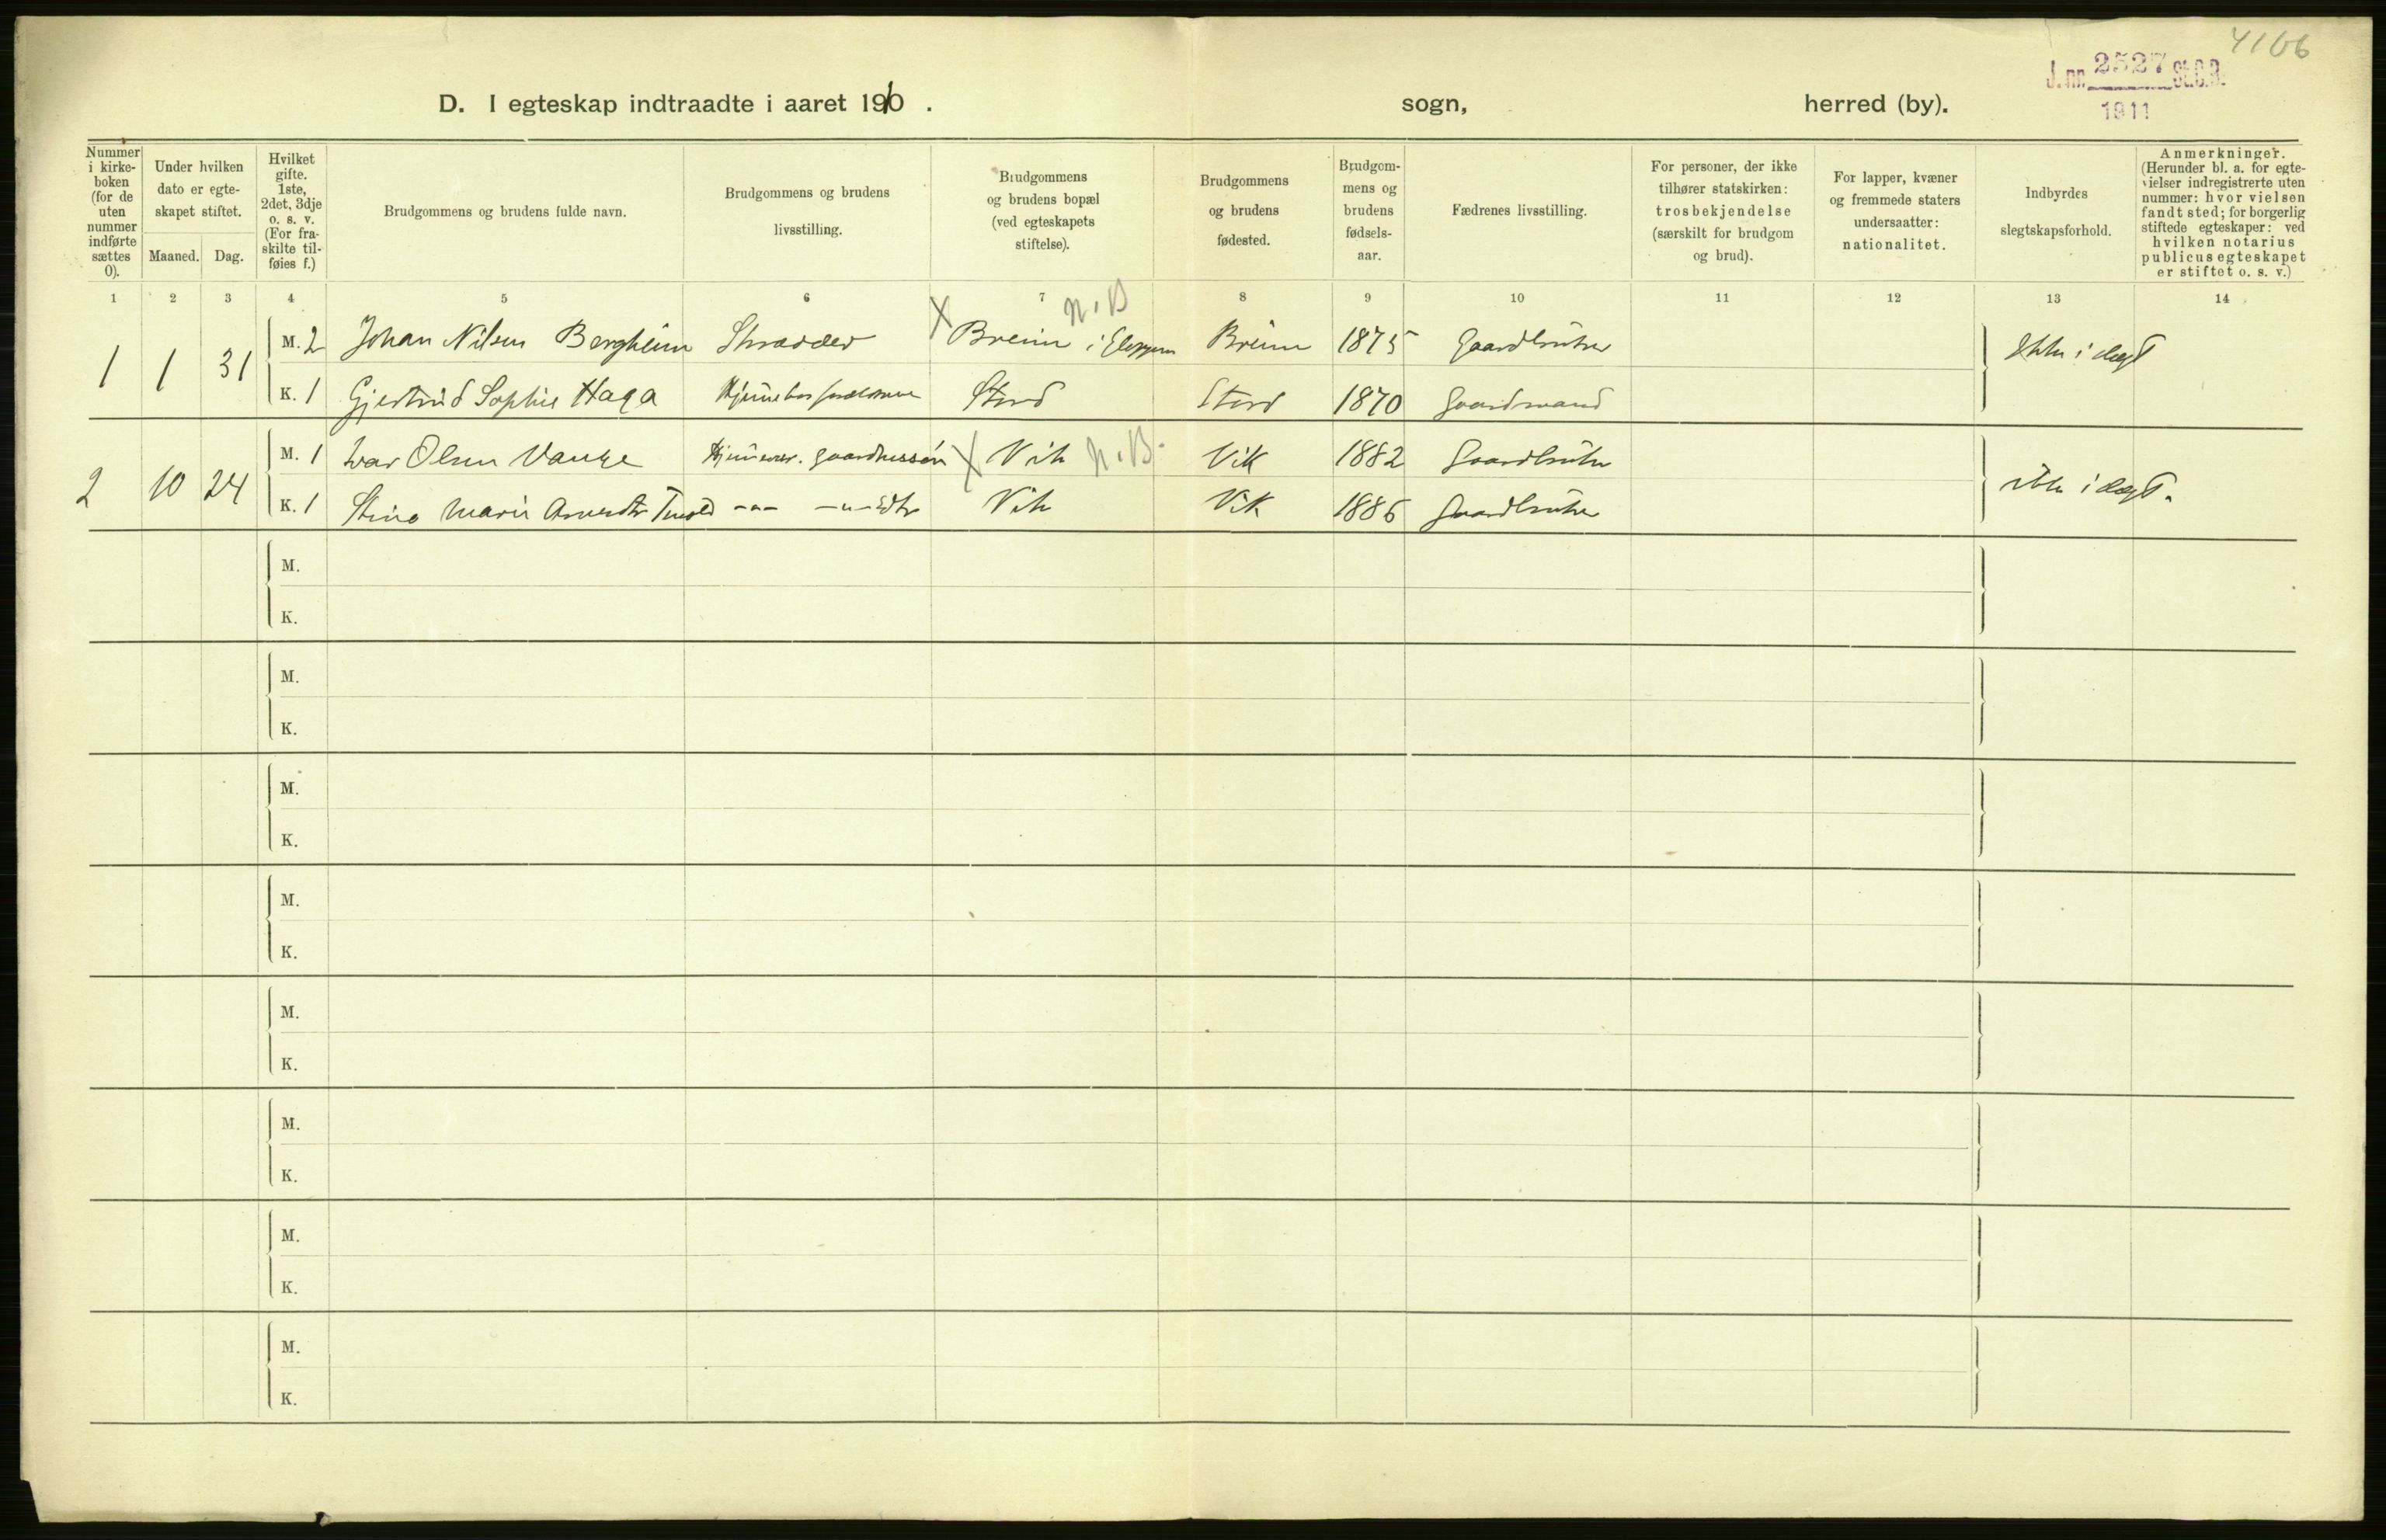 4106
J. nr. 2527 St.C.B.
1911
D. I egteskap indtraadte i aaret 1910 . sogn, herred (by).
Nummer i kirke- boken (for de uten nummer indførte sættes 0).
Under hvilken dato er egte- skapet stiftet.
Maaned. Dag.
Hvilket gifte. 1ste, 2det, 3dje o. s. v. (For fra- skilte til- føies f.)
Brudgommens og brudens fulde navn.
Brudgommens og brudens livsstilling.
Brudgommens og brudens bopæl (ved egteskapets stiftelse).
Brudgommens og brudens fødested.
Brudgom- mens og brudens fødsels- aar.
Fædrenes livsstilling.
For personer, der ikke tilhører statskirken: trosbekjendelse (særskilt for brudgom og brud).
For lapper, kvæner og fremmede staters undersaatter: nationalitet.
Indbyrdes slegtskapsforhold.
Anmerkninger. (Herunder bl. a. for egte- vielser indregistrerte uten nummer: hvor vielsen fandt sted; for borgerlig stiftede egteskaper: ved hvilken notarius publicus egteskapet er stiftet o. s. v.)
1 2 3 4 5 6 7 8 9 10 11 12 13 14
N.B
1 1 31 M. 2 Johan Nilsen Bergheim Skrædder X Breim i Gloppen Breim 1875 Gaardbruker Ikke i slegt
K. 1 Gjertrud Sophie Haga Stord Stord 1870 Gaardmand
2 10 24 M. 1 Ivar Olsen Vange X Vik N.B. Vik 1882 Gaardbruker ikke i slegt.
K. 1 Stina Marie Vik Vik 1886 Gaardbruker
M.
K.
M.
K.
M.
K.
M.
K.
M.
K.
M.
K.
M.
K.
M.
K.